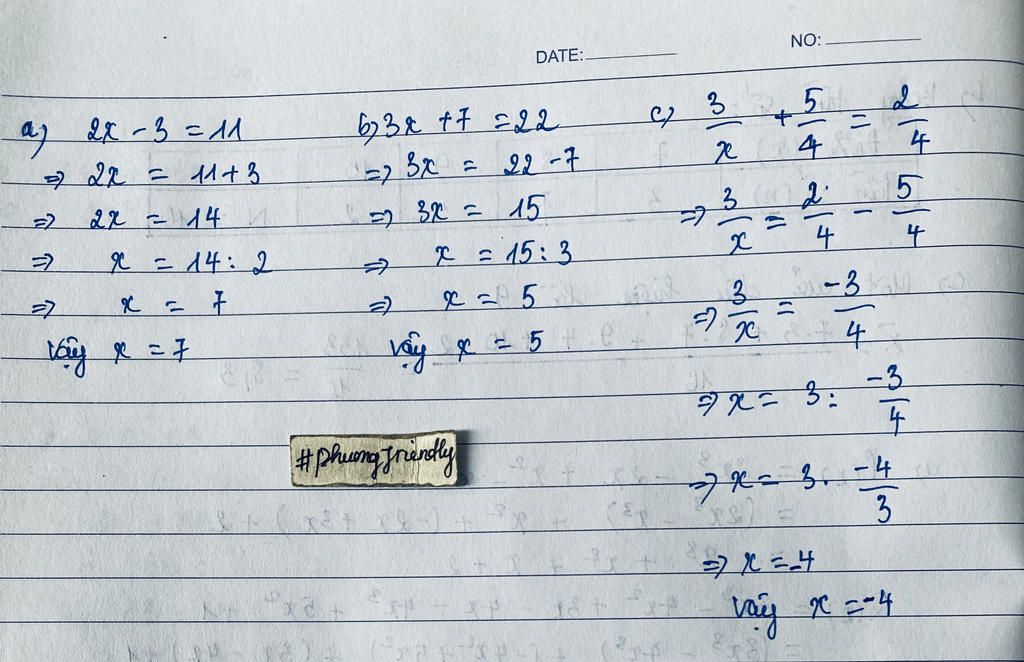 DATE:
NO:
a) 2x - 3 = 11
=> 2x = 11 + 3
=> 2x = 14
=> x = 14 : 2
=> x = 7
Vậy x = 7
b) 3x + 7 = 22
=> 3x = 22 - 7
=> 3x = 15
=> x = 15 : 3
=> x = 5
Vậy x = 5
c) 3/x + 5/4 = 2/4
=> 3/x = 2/4 - 5/4
=> 3/x = -3/4
=> x = 3 : -3/4
=> x = 3 . -4/3
=> x = -4
Vậy x = -4
#phuongfriendly